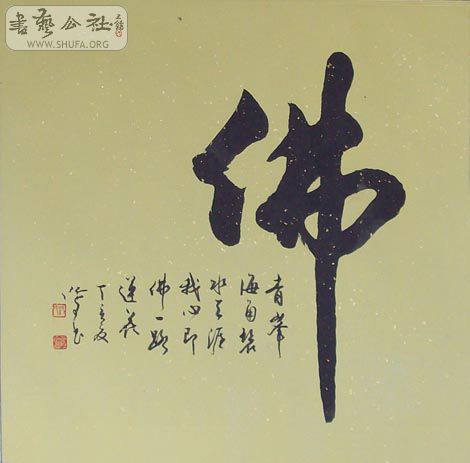 書藝公社
WWW.SHUFA.ORG
佛
青峯
海角碧
水天涯
我心即
佛一路
蓮花
丁亥夏